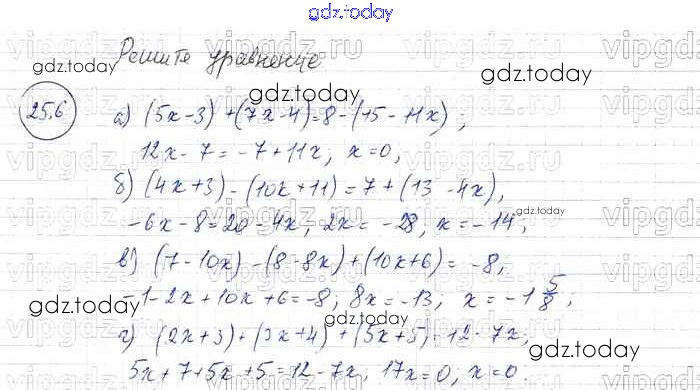 gdz.today
Решите уравнение
25.6
а) (5x-3)+(7x-4)=8-(15-11x);
12x-7=-7+11x; x=0,
б) (4x+3)-(10x+11)=7+(13-4x),
-6x-8=20-4x, 2x=-28, x=-14;
в) (7-10x)-(8-8x)+(10x+6)=-8,
-1-2x+10x+6=-8; 8x=-13, x=-1 5/8;
г) (2x+3)+(3x+4)+(5x+5)=12-7x;
5x+7+5x+5=12-7x, 17x=0, x=0.
gdz.today
gdz.today
gdz.today
gdz.today
gdz.today
gdz.today
vipgdz.ru
vipgdz.ru
vipgdz.ru
vipgdz.ru